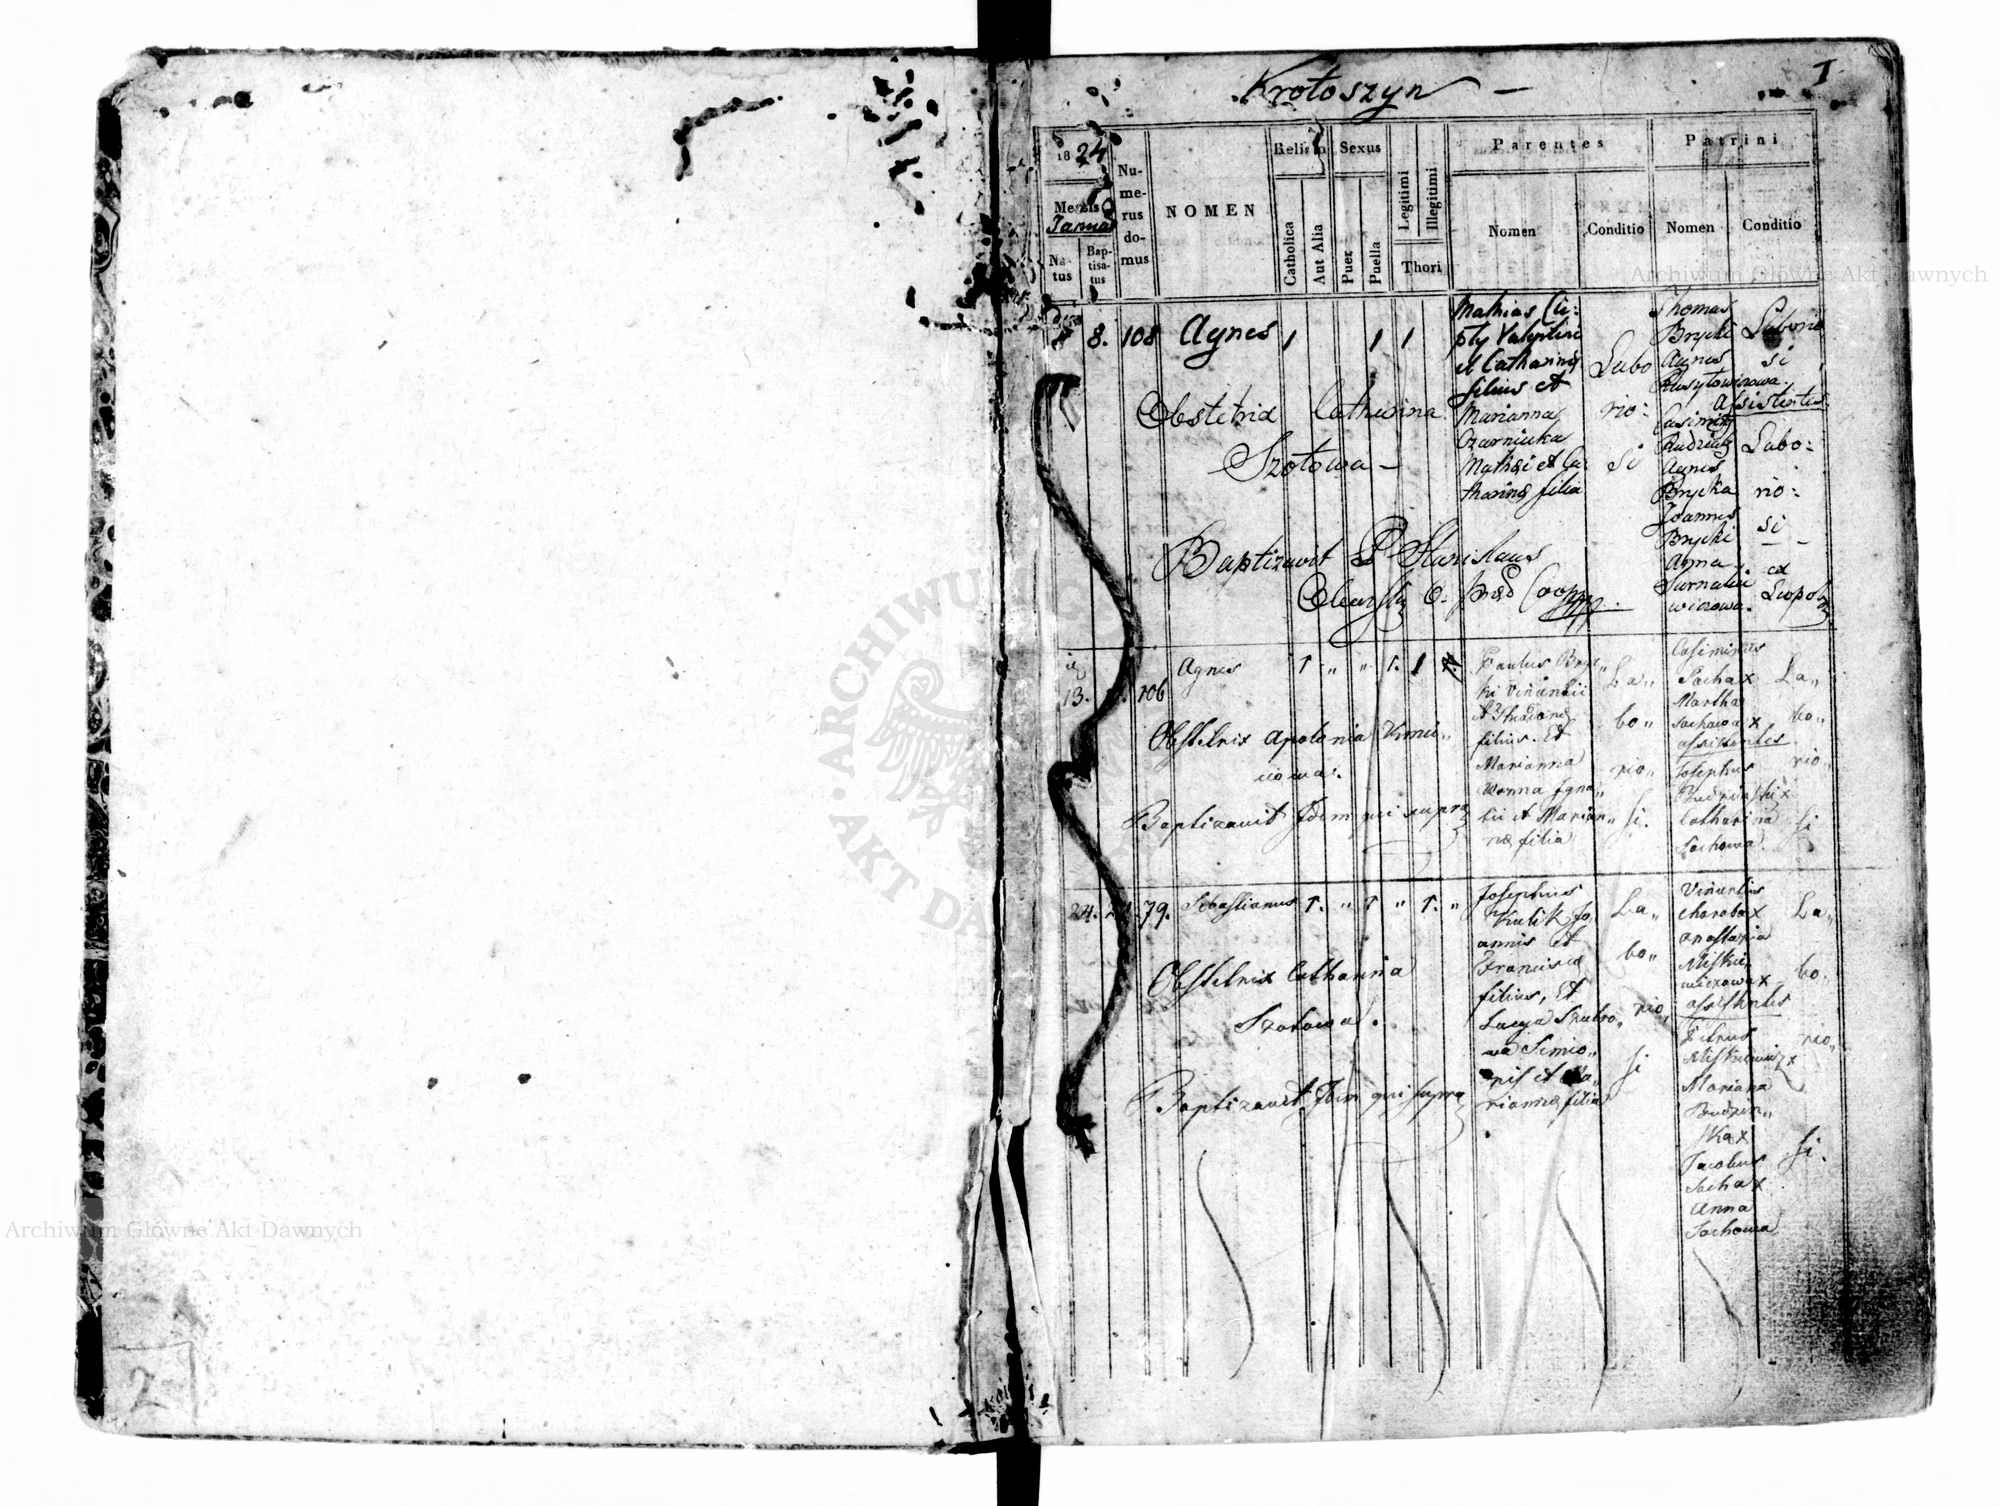 Krotoszyn —
1
1824
Mensis
Janua
Natus
Bap-
tisa-
tus
Nu-
me-
rus
do-
mus
NOMEN
Religio
Catholica
Aut Alia
Sexus
Puer
Puella
Legitimi
Illegitimi
Thori
Parentes
Nomen
Conditio
Patrini
Nomen
Conditio
8. 108 Agnes 1 1 1
Obstetrix Catharina
Szotowa —
Baptizavit P Stanislaus
Mathias Cie:
pły Valentini
et Catharinæ
filius et
Marianna
Czarniecka
Mathæi et Ca:
tharinæ filia
Labo
rio:
si
Thomas
Brycki
Agnes
Assistentes
Casimirus
Agnes
Brycka
Joannes
Brycki
Anna
Laborio
si
Labo:
rio:
si
ex
13. 106 Agnes 1 " " 1. 1
Obstetrix Apolonia
Baptizavit Idem qui supra
Paulus Bryc"
ki Vincentii
filius. Et
Marianna
Wonna Igna"
tii et Marian"
næ filia
La"
bo"
rio"
si.
Casimirus
Socha x
Martha
Sochowa x
assistentes
Josephus
Catharina
Sochowa
La"
bo"
rio"
si
24. 79. Sebastianus 1. " 1 " 1. "
Obstetrix Catharina
Szotowa.
Baptizavit Idem qui supra
Josephus
Kulik Jo
annis Et
Francisca
filius, Et
Lucya
Simio"
nis et Ma"
rianna filia
La"
bo"
rio"
si
Vincentius
Choroba x
Anastazia
Miskie"
wiczowa x
assistentes
Petrus
Miskiewicz x
Mariana
Budzen"
ska x
Jacobus
Socha x
Anna
Sochowa
La"
bo.
rio"
si.
2
ARCHIWUM GŁÓWNE AKT DAWNYCH
Archiwum Główne Akt Dawnych
Archiwum Główne Akt Dawnych